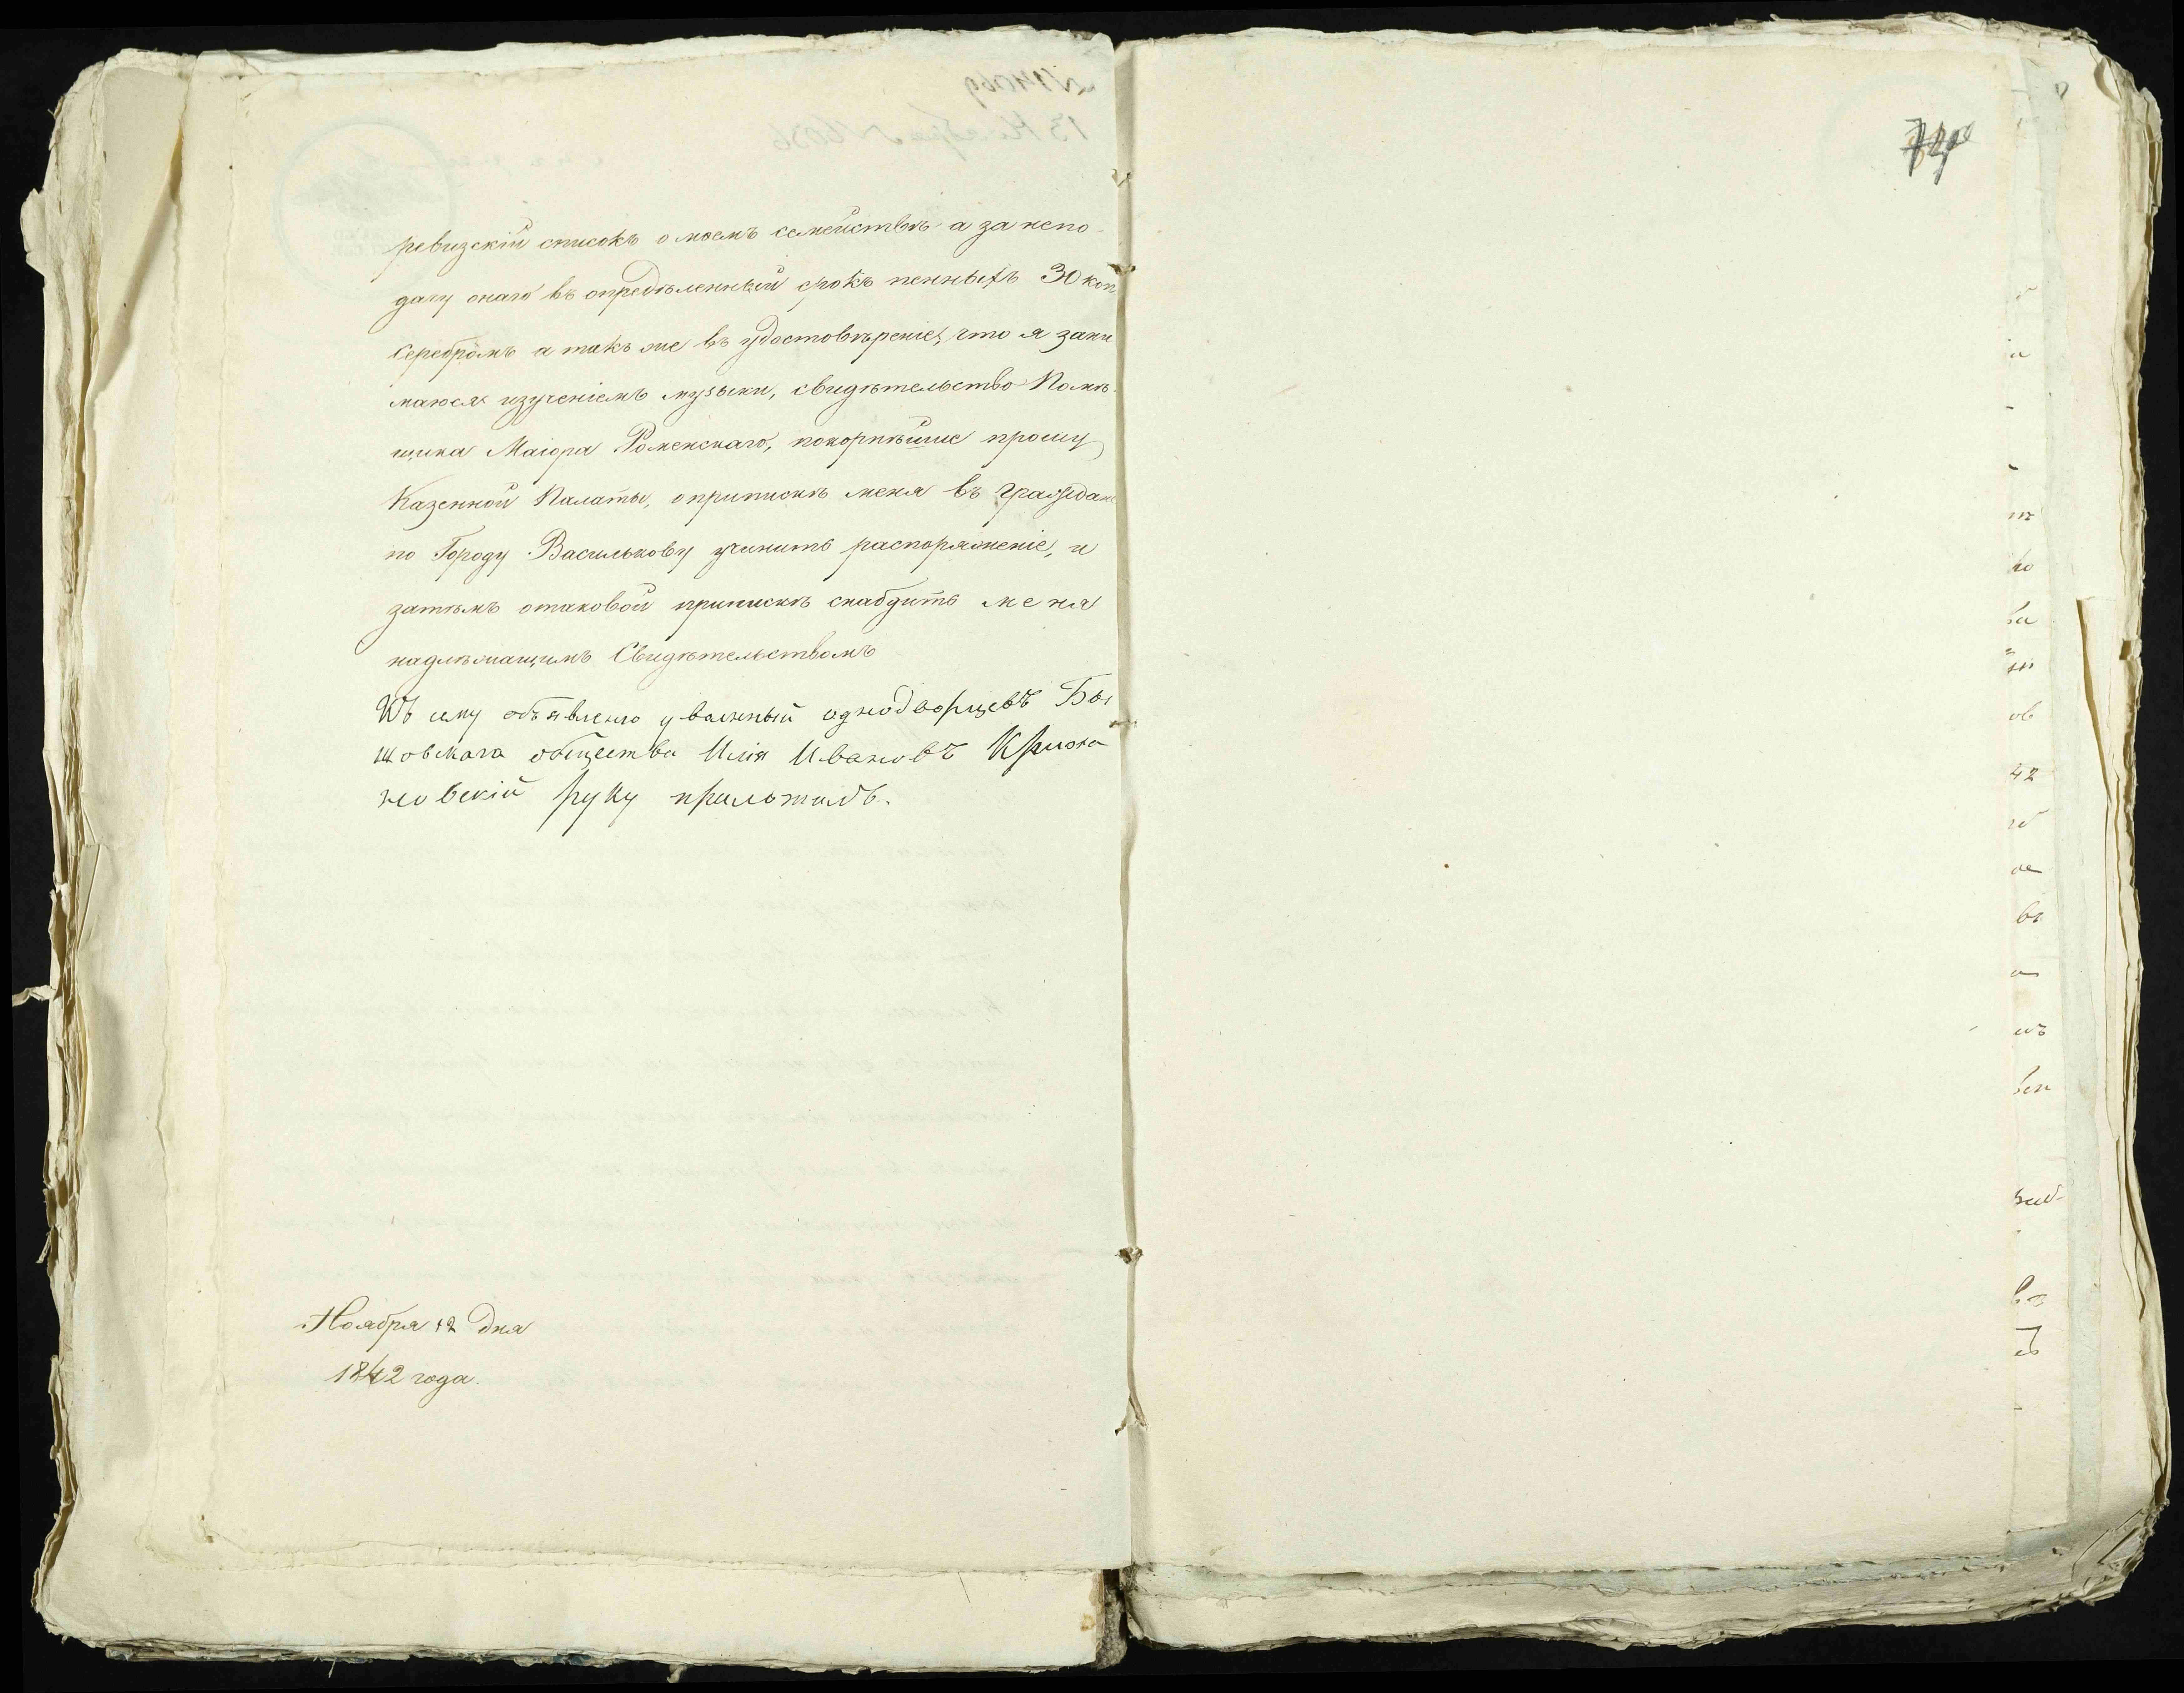 74
ревизскій списокъ о моемъ семействѣ а за непо-
дачу онаго въ опредѣленный срокъ пенныхъ 30 коп
серебромъ а такъ же въ удостовѣреніе, что я зани
маюся изученіемъ музыки, свидѣтельство Помѣ-
щика Маіора Роменскаго, покорнѣйше прошу
Казенной Палаты, о припискѣ меня въ граждане
по Городу Василькову учинить распоряженіе, и
затѣмъ о таковой припискѣ снабдить меня
надлѣжащимъ Свидѣтельствомъ
Къ сему объявленію уваженый однодворцевъ Бы
шовскага общества Илія Ивановъ Крижа
новскій руку приложилъ.
Ноября 12 дня
1842 года.